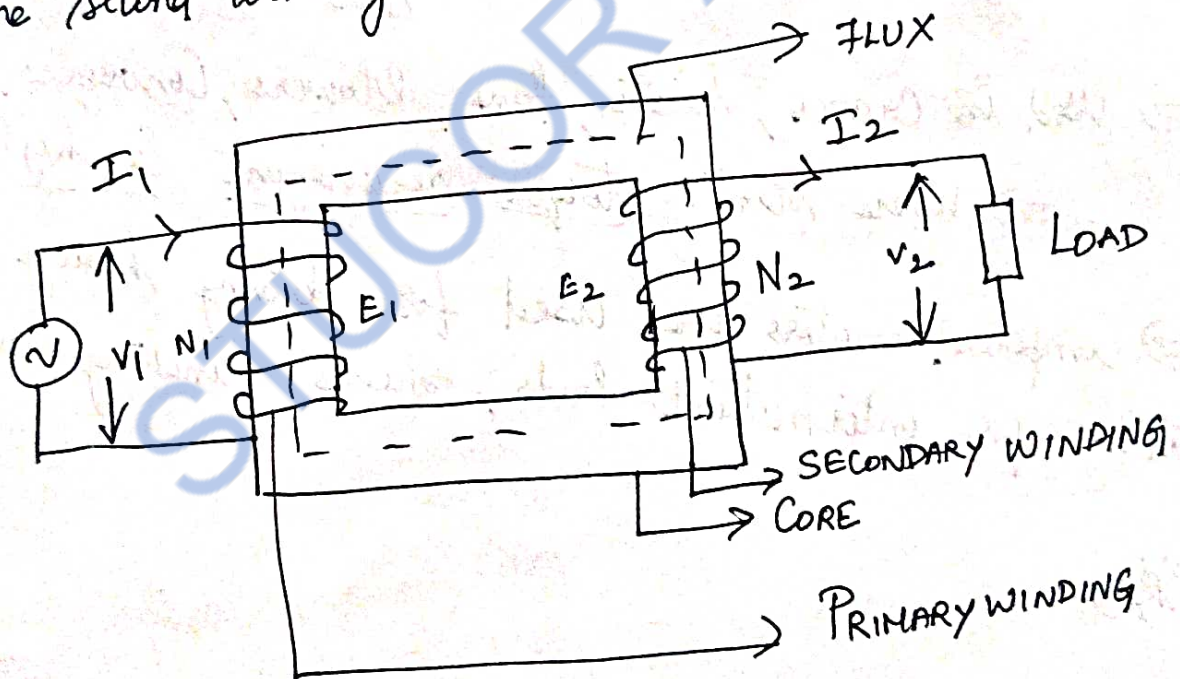 the second winding
FLUX
I1
I2
V1
N1
E1
E2
N2
V2
LOAD
SECONDARY WINDING
CORE
PRIMARY WINDING
STUCOR